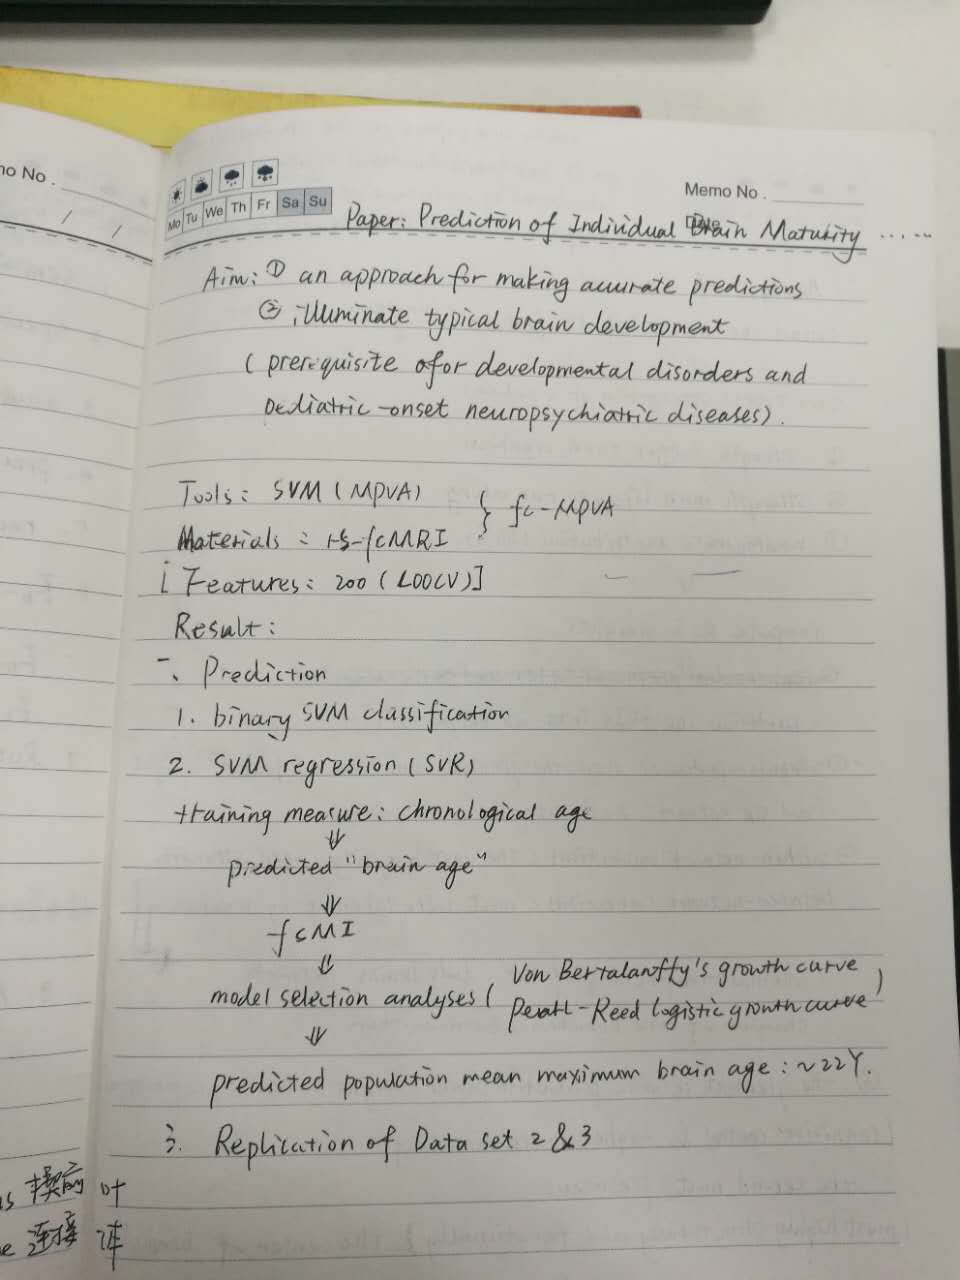 no No.
Memo No.
Mo Tu We Th Fr Sa Su
Paper: Prediction of Individual Brain Maturity ......
Aim: ① an approach for making accurate predictions
② illuminate typical brain development
( prerequisite ofor developmental disorders and
pediatric-onset neuropsychiatric diseases).
Tools: SVM (MPVA)
Materials: rs-fcMRI
} fc-MPVA
[Features: 200 (LOOCV)]
Result:
一、Prediction
1. binary SVM classification
2. SVM regression (SVR)
training measure: chronological age
⇓
predicted "brain age"
⇓
fcMI
⇓
model selection analyses ( Von Bertalanffy's growth curve
Pearl-Reed logistic growth curve )
⇓
predicted population mean maximum brain age: ~22Y.
3. Replication of Data set 2 & 3
连接